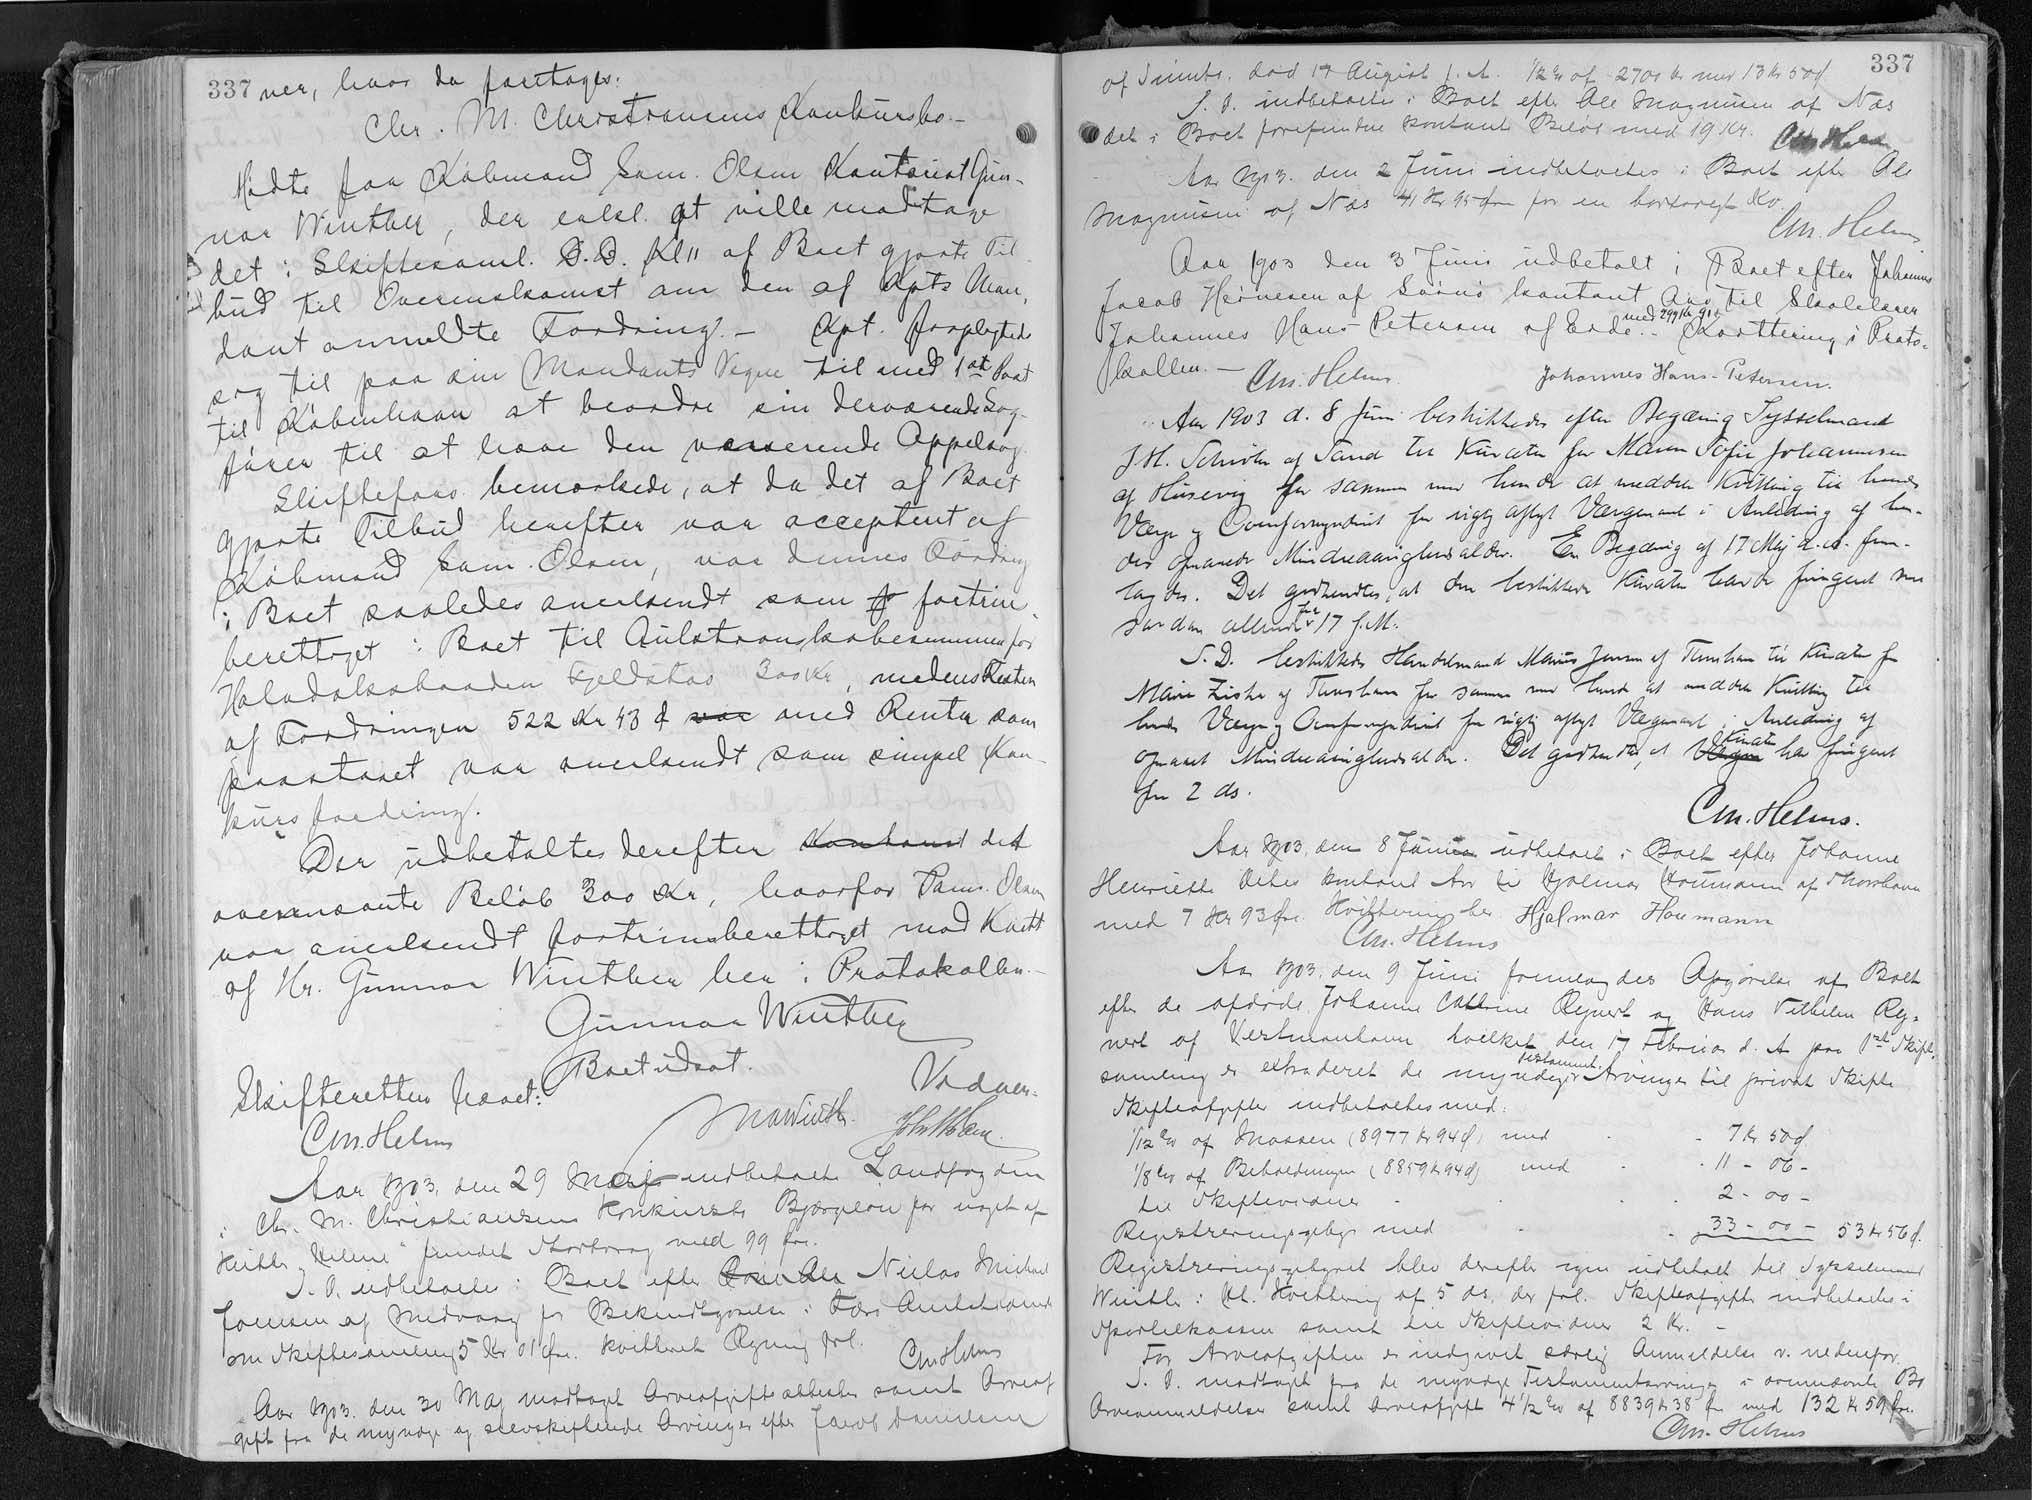 337
ner, hvor da foretages:
Chr. M. Christiansens Konkursbo.-
Mødte for Købmand Sam. Olsen Kontorist Gun-
nar Winther, der erkl. at ville modtage
det i Skiftesaml. S.D. Kl 11 af Boet gjorte Til-
bud til Overenskomst om den af Kpts Man-
dant anmeldte Fordring.- Kpt. forpligtede
sig til paa sin Mandants Vegne til med 1ste Post
til København at beordre sin derværende Sag-
fører til at hæve den verserende Appelsag.
Skifteforv. bemærkede, at da det af Boet
gjorte Tilbud herefter var accepteret af
Købmand Sam. Olsen, var dennes Fordring
i Boet saaledes anerkendt som fortrin-
berettiget i Boet til
300 Kr, medens Resten
af Fordringen 522 Kr 43 Ø var med Renter som
paastaaet var anerkendt som simpel Kon-
kursfordring.
Der udbetaltes derefter Kontant det
ovennævnte Beløb 300 Kr, hvorfor Sam. Olsen
var anerkendt fortrinsberettiget mod Kvitt
af Hr. Gunnar Winther her i Protokollen.-
Gunnar Winther
Skifteretten hævet:
Boet udsat.
Vidner:
C.M. Helms
Aar 1903, den 29 Maj indbetalte Landfogden
i Chr. M. Christiansens Konkursbo Bjergeløn for noget af
fundet med 99 Øre.
S.D. udbetaltes i Boet efter Niclas Michael
Joensen af Midvaag for Bekendtgørelse i Færø Amtstidende
om Skiftesamling 5 Kr 01 Øre. Kvitteret Regning frl.
C.M. Helms
Aar 1903, den 30 Maj modtaget Arveafgiftsattester samt Arveaf-
gift fra de myndige og selvskiftende Arvinger efter Jacob Danielsen
337
af død 17 August f. A. 1/2 % af 2700 Kr med 13 Kr 50 Ø.
S.D. indbetaltes i Boet efter Ole Magnusen af Næs
det i Boet forefundne kontante Beløb med 19 Kr. C.M. Helms
Aar 1903, den 2 Juni indbetaltes i Boet efter Ole
Magnusen af Næs 41 Kr 95 Øre for en bortsolgt Ko.
C.M. Helms
Aar 1903 den 3 Juni udbetalt i Boet efter Johannes
Jacob af kontant Arv til Skolelærer
Johannes Hans-Petersen af Eide med Kvittering i Proto-
kollen.-
C.M. Helms.
Johannes Hans-Petersen.
Aar 1903 d. 8 Juni beskikkedes efter Begæring Sysselmand
J.H. Schrøter af Sand til Kurator for Maren Sofie Johannesen
af Husevig for sammen med hende at meddele Kvittering til hendes
Værge og Overformynderiet for rigtig aflagt Værgemaal i Anledning af hen-
des opnaaede Mindreaarighedsalder. En Begæring af 17 Maj d.A. frem-
lagdes. Det godkendtes, at den beskikkede Kurator havde fungeret som
saadan allerede fra 17 f.M.
S.D. beskikkedes Handelsmand Marius Jensen af til Kurator for
Marie af for sammen med hende at meddele Kvittering til
hendes Værge og Overformynderiet for rigtig aflagt Værgemaal i Anledning af
opnaaet Mindreaarighedsalder. Det godkendtes, at Værgen Kurator har fungeret
fra 2 ds.
C.M. Helms.
Aar 1903, den 8 Juni udbetalt i Boet efter Johanne
Henriette kontant Arv til Hjalmar Houmann af Thorshavn
med 7 Kr 93 Øre. Kvittering her. Hjalmar Houmann
C.M. Helms
Aar 1903, den 9 Juni foretoges Opgørelse af Boet
efter de afdøde Johanne Cathrine Reynert og Hans Vilhelm Rey-
nert af Vestmanhavn hvilket den 17 Februar d. A. paa 1ste Skifte-
samling er extraderet de myndige testament. Arvinger til privat Skifte
Skifteafgifter indbetaltes med:
1/12 % af Massen (8977 Kr 94 Ø) med - 7 Kr 50 Ø
1/8 % af Beholdningen (8859 Kr 94 Ø) med - 11 - 06 -
til Skiftevidner - 2 - 00 -
Registreringsgebyr med - 33 - 00 - 53 Kr 56 Ø.
Registreringsgebyret blev derefter igen udbetalt til Sysselmand
Winther i Hl. Kvittering af 5 ds. der frl. Skifteafgifter indbetaltes i
Sportelkassen samt til Skiftevidner 2 Kr. -
For Arveafgiften er indgivet særlig Anmeldelse v. nedenfor.
S.D. modtaget fra de myndige Testamentarvinger i ovennævnte Bo
Arveanmeldelse samt Arveafgift 4 1/2 % af 8839 Kr 38 Øre med 132 Kr 59 Øre.
C.M. Helms